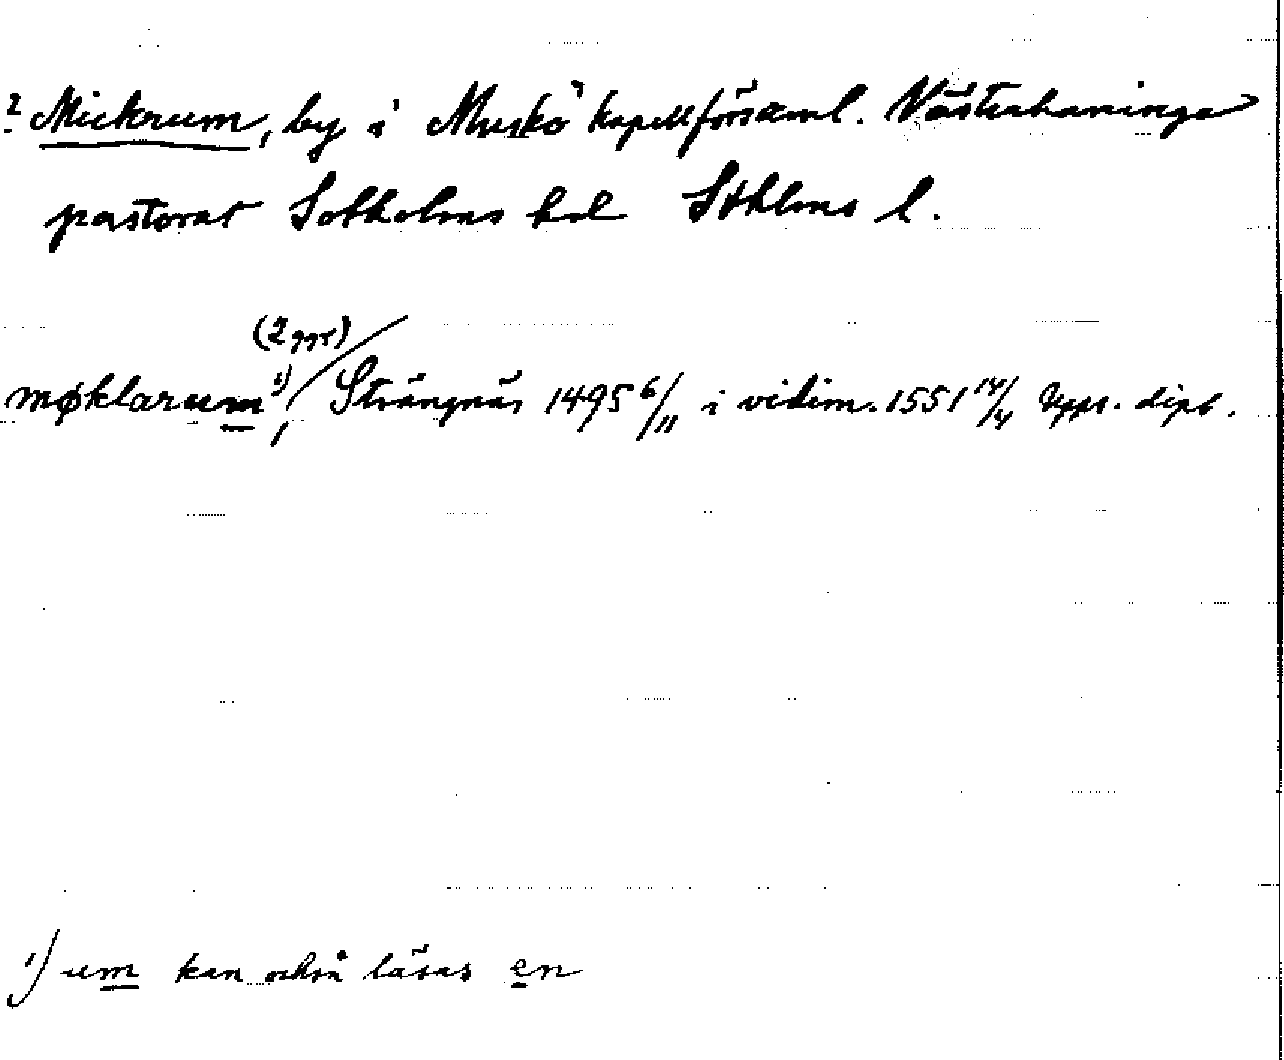 ? Mickrum, by i Muskö kapellförsaml. Västerhaninge
pastorat Sotholms hd Sthlms l.
(2 ggr)
møklarum 1), Strängnäs 1495 6/11 i vidim. 1551 14/4 Upps. dipl.
1) um kan också läsas en